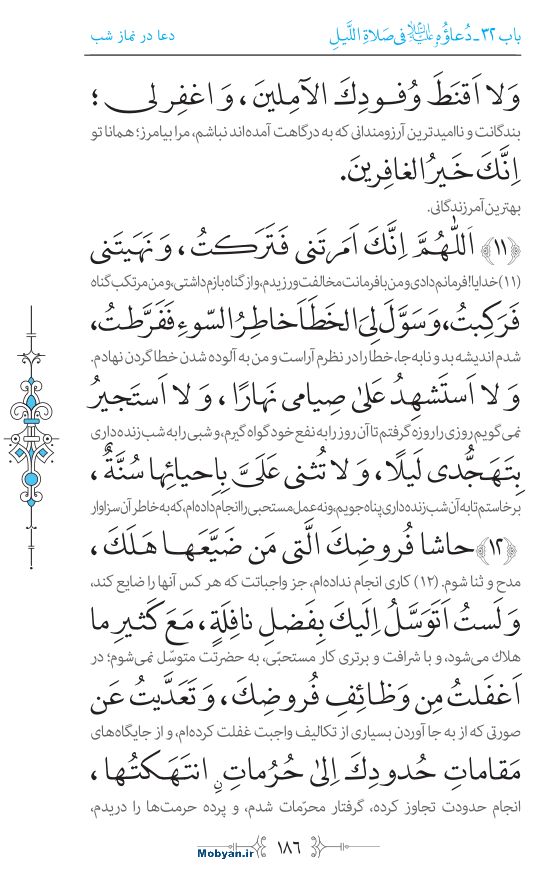 باب ۳۲ـ دُعاؤُهُ علیه‌السلام فی صَلاةِ اللَّیلِ
دعا در نماز شب
وَلا اَقنَطَ وُفودِكَ الآمِلینَ، وَ اغفِر لی؛
بندگانت و ناامیدترین آرزومندانی که به درگاهت آمده‌اند نباشم، مرا بیامرز؛ همانا تو
اِنَّكَ خَیرُ الغافِرینَ.
بهترین آمرزندگانی.
﴿۱۱﴾ اَللّٰهُمَّ اِنَّكَ اَمَرتَنی فَتَرَكتُ، وَ نَهَیتَنی
(۱۱) خدایا! فرمانم دادی و من با فرمانت مخالفت ورزیدم، و از گناه بازم داشتی، و من مرتکب گناه
فَرَكِبتُ، وَ سَوَّلَ لِیَ الخَطَأَ خاطِرُ السّوءِ فَفَرَّطتُ،
شدم اندیشه بد و نابه‌جا، خطا را در نظرم آراست و من به آلوده شدن خطا گردن نهادم.
وَ لا اَستَشهِدُ عَلیٰ صِیامی نَهارًا، وَ لا اَستَجیرُ
نمی‌گویم روزی را روزه گرفتم تا آن روز را به نفع خود گواه گیرم، و شبی را به شب زنده‌داری
بِتَهَجُّدی لَیلًا، وَ لا تُثنی عَلَیَّ بِاِحیائِها سُنَّةٌ،
برخاستم تا به آن شب زنده‌داری پناه جویم، و نه عمل مستحبی را انجام داده‌ام، که به خاطر آن سزاوار
﴿۱۲﴾ حاشا فُروضِكَ الَّتی مَن ضَیَّعَها هَلَكَ،
مدح و ثنا شوم. (۱۲) کاری انجام نداده‌ام، جز واجباتت که هر کس آنها را ضایع کند،
وَ لَستُ اَتَوَسَّلُ اِلَیكَ بِفَضلِ نافِلَةٍ، مَعَ كَثیرِ ما
هلاك می‌شود، و با شرافت و برتری کار مستحبّی، به حضرتت متوسّل نمی‌شوم؛ در
اَغفَلتُ مِن وَظائِفِ فُروضِكَ، وَ تَعَدَّیتُ عَن
صورتی که از به جا آوردن بسیاری از تکالیف واجبت غفلت کرده‌ام، و از جایگاه‌های
مَقاماتِ حُدودِكَ اِلیٰ حُرُماتٍ انتَهَكتُها،
انجام حدودت تجاوز کرده، گرفتار محرّمات شدم، و پرده حرمت‌ها را دریدم،
۱۸۶
Mobyan.ir